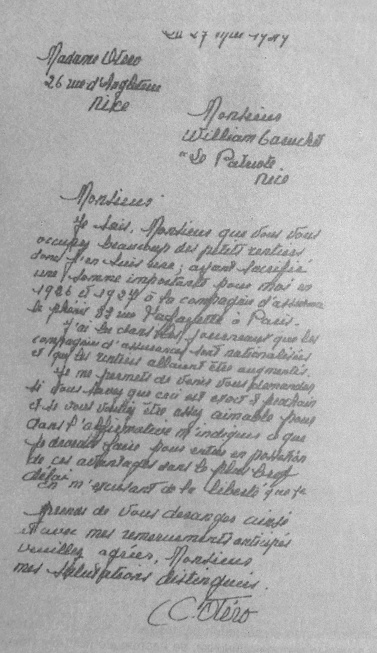 27 1949
Madame Otéro
26 rue d'Angleterre
Nice
Monsieur
William Caruchet
"Le Patriote
Nice
Monsieur
Je sais, Monsieur que vous vous
occupez beaucoup des petits rentiers
dont j'en suis une; ayant sacrifié
une somme importante pour moi en
1926 et 1927 à la compagnie d'assurance
le phénix 33 rue Lafayette à Paris.
J'ai lu dans les journeaux que les
compagnie d'assurances sont nationalisées
et que les rentiers allaient être augmentés.
Je me permets de venir vous demander
si vous savez que ceci est exact & prochain
et si vous vouliez être assez aimable pour
dans l'affirmative m'indiquer ce que
je devrais faire pour entrer en possession
de ces avantages dans le plus bref
délai.
En m'excusant de la liberté que je
prends de vous déranger ainsi
et avec mes remerciements anticipés
veuillez agréer, Monsieur
mes salutations distingués.
C Otéro